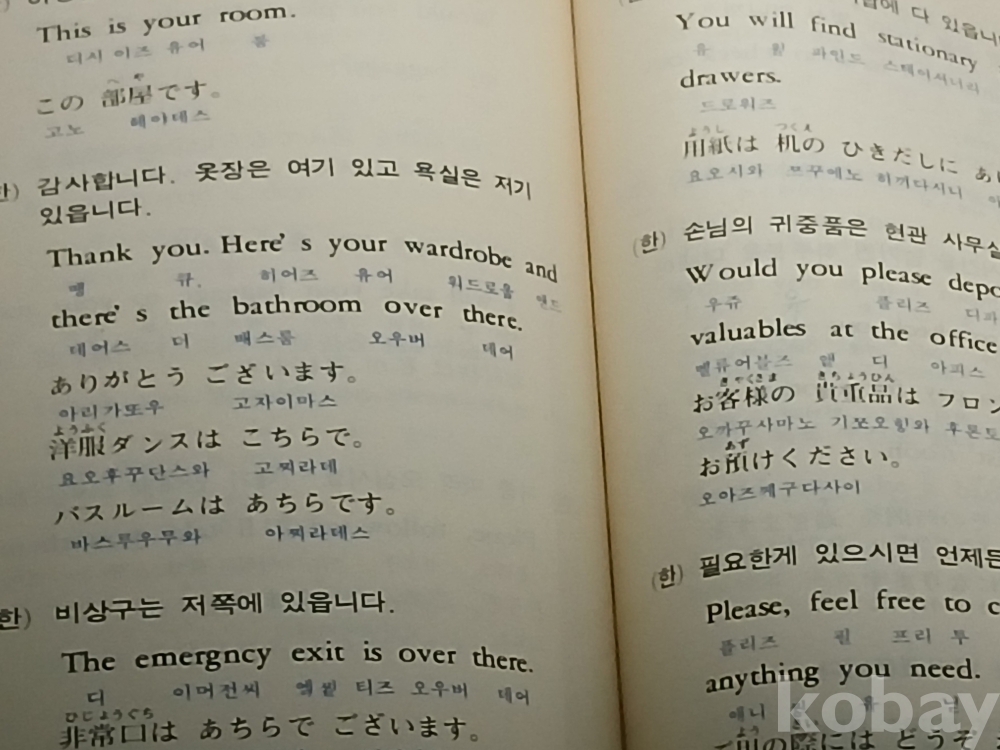 This is your room.
디시 이즈 유어 룸
へ や
この 部屋です。
고노 헤야데스
한) 감사합니다. 옷장은 여기 있고 욕실은 저기
있읍니다.
Thank you. Here's your wardrobe and
땡 큐. 히어즈 유어 워드로움 앤드
there's the bathroom over there.
데어스 더 배스룸 오우버 데어
ありがとう ございます。
아리가또우 고자이마스
ようふく
洋服ダンスは こちらで。
요오후꾸단스와 고찌라데
バスルームは あちらです。
바스루우무와 아찌라데스
한) 비상구는 저쪽에 있읍니다.
The emergncy exit is over there.
디 이머전씨 티즈 오우버 데어
ひじょうぐち
非常口は あちらで ございます。
다 있읍니
You will find stationary
유 윌 파인드 스테이셔너리
drawers.
드로워즈
ようし つくえ
用紙は 机の ひきだしに あ
요오시와 쯔꾸에노 히끼다시니
(한) 손님의 귀중품은 현관 사무실
Would you please depo
우쥬 플리즈 디파
valuables at the office
밸류어블즈 앹 디 아피스
きゃくさま きちょうひん
お客様の 貴重品は フロン
오까꾸사마노 기쪼오힝와 후론토
あず
お預けください。
오아즈께구다사이
(한) 필요한게 있으시면 언제든
Please, feel free to c
플리즈 필 프리 투
anything you need.
애니
の際には どうぞ
kobay